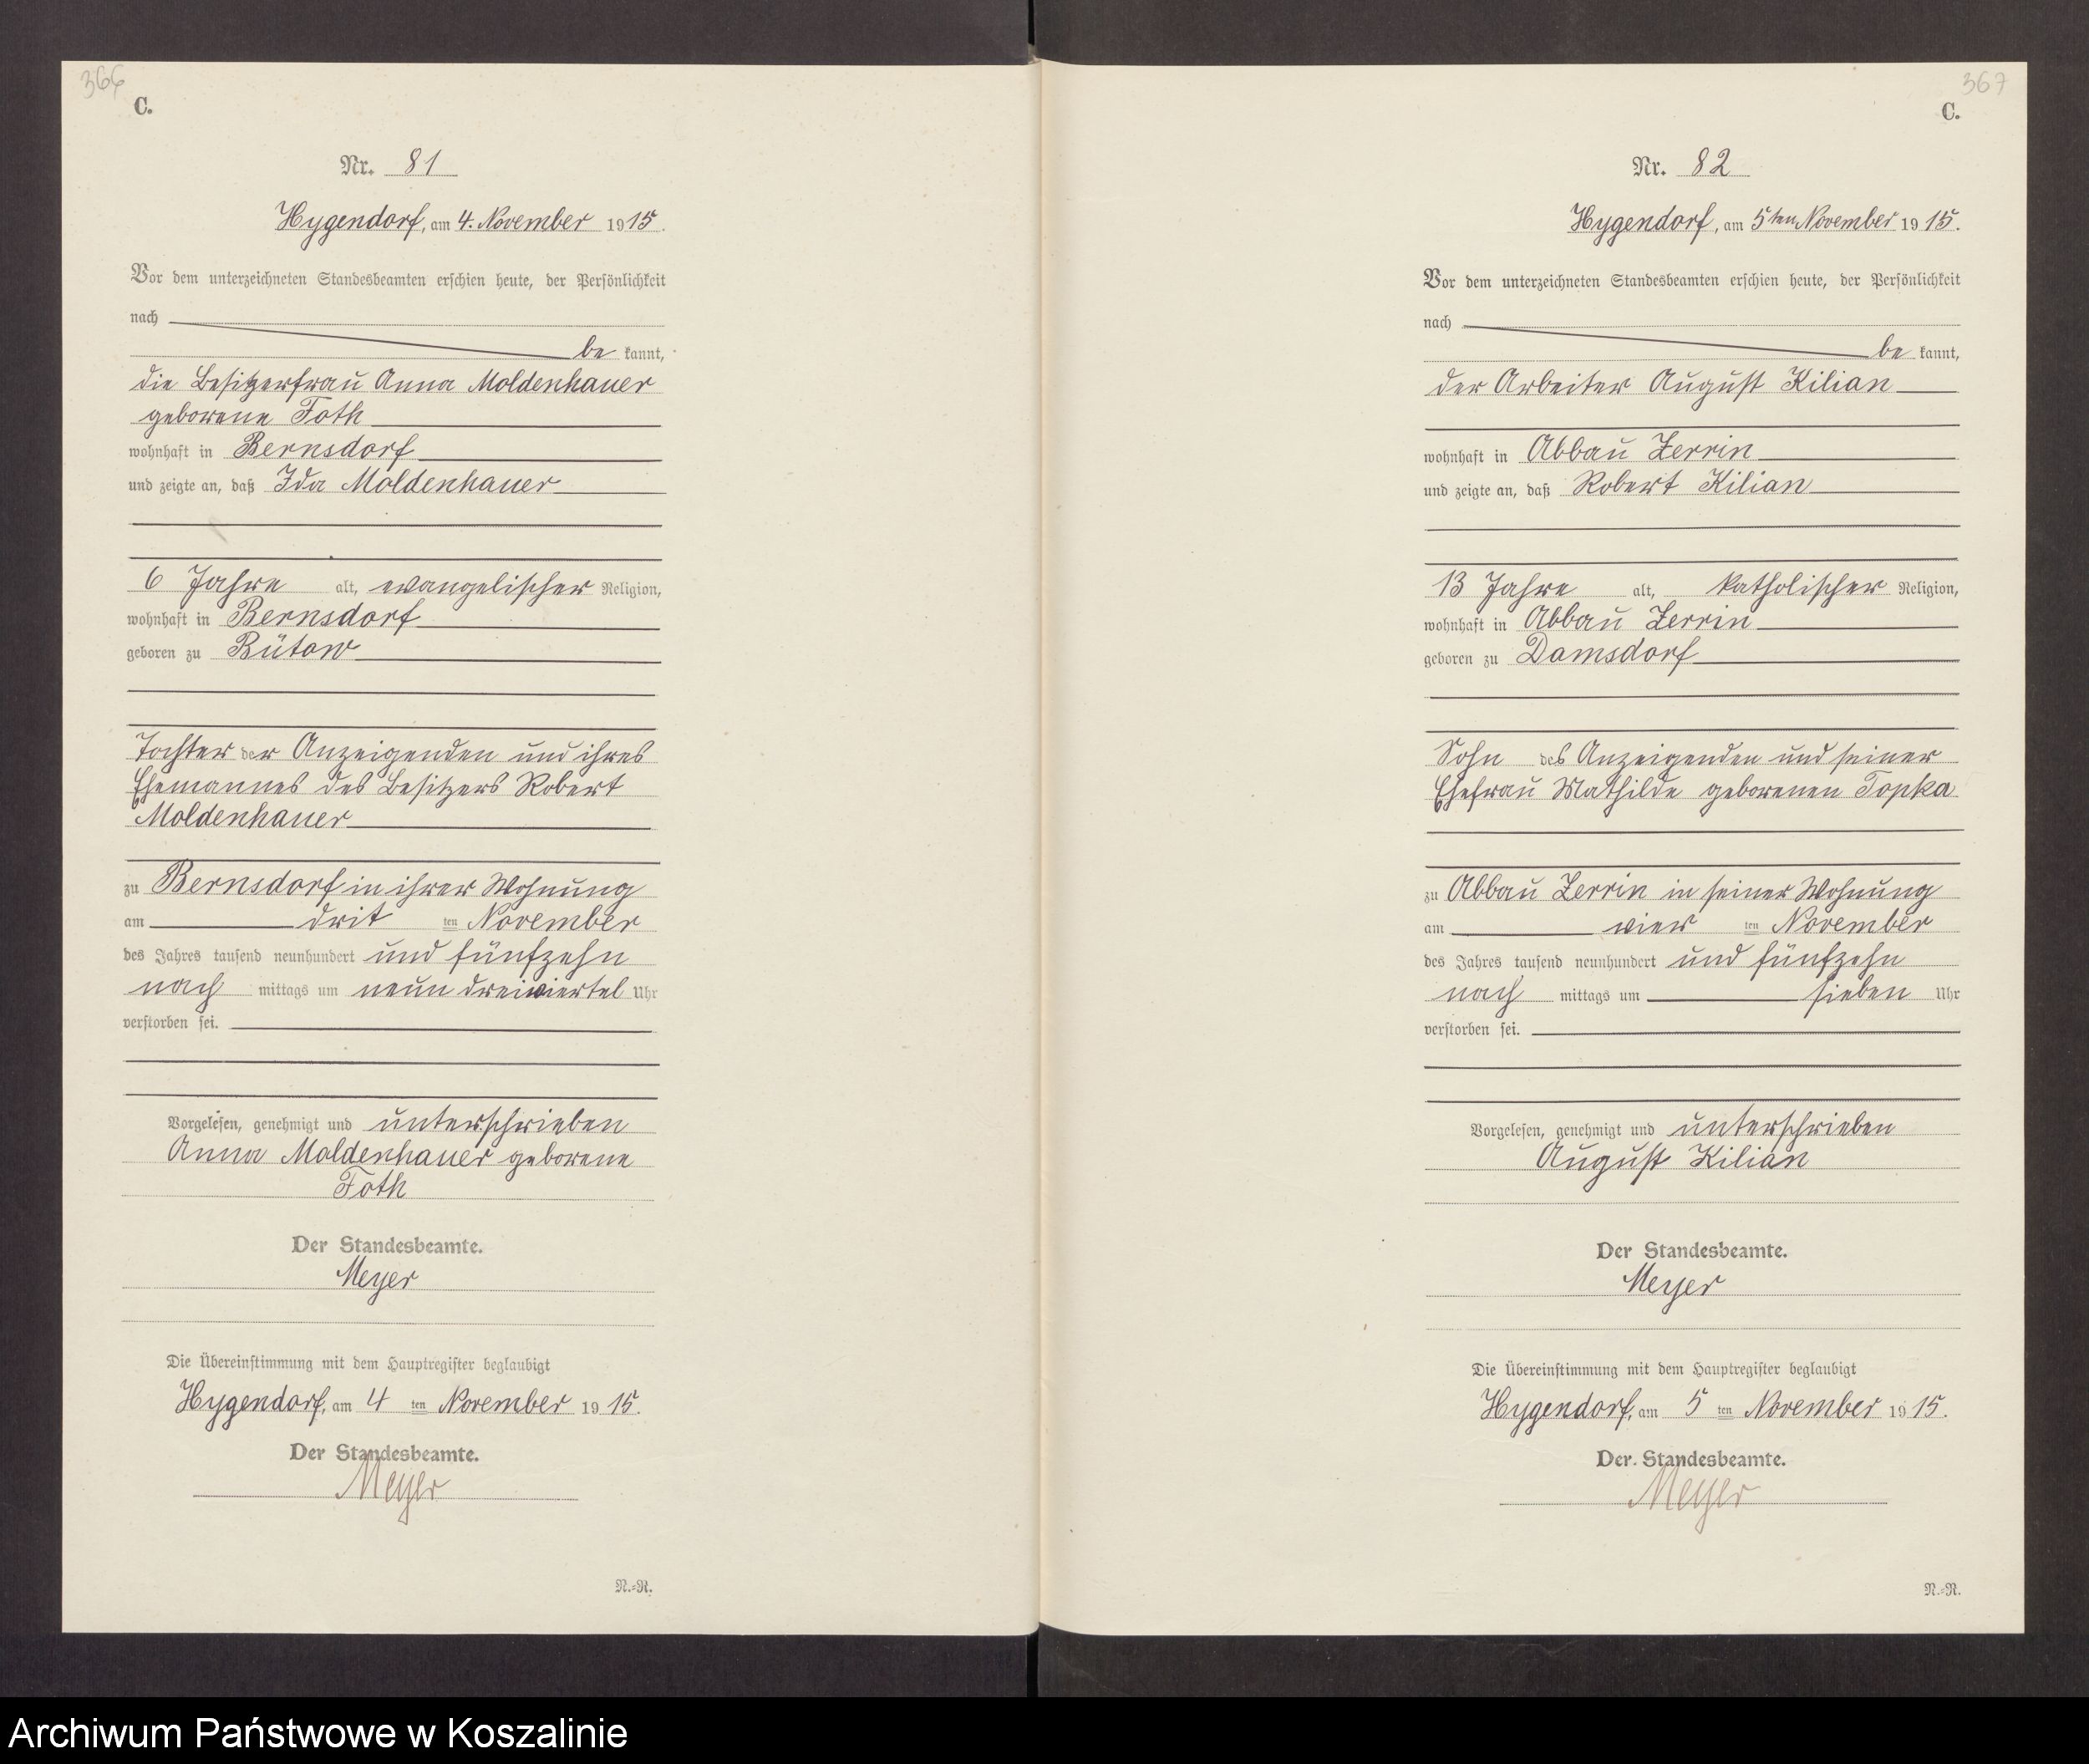 366
C.
Nr. 81
Hygendorf, am 4. November 1915.
Vor dem unterzeichneten Standesbeamten erschien heute, der Persönlichkeit
nach
be kannt,
die Besitzerfrau Anna Moldenhauer
geborene Toth
wohnhaft in Bernsdorf
und zeigte an, daß Ida Moldenhauer
6 Jahre alt, evangelischer Religion,
wohnhaft in Bernsdorf
geboren zu Bütow
Tochter der Anzeigenden und ihres
Ehemannes des Besitzers Robert
Moldenhauer
zu Bernsdorf in ihrer Wohnung
am drit ten November
des Jahres tausend neunhundert und fünfzehn
nach mittags um neun dreiviertel Uhr
verstorben sei.
Vorgelesen, genehmigt und unterschrieben
Anna Moldenhauer geborene
Toth
Der Standesbeamte.
Meyer
Die Übereinstimmung mit dem Hauptregister beglaubigt
Hygendorf, am 4 ten November 1915.
Der Standesbeamte.
Meyer
N.=R.
367
C.
Nr. 82
Hygendorf, am 5ten November 1915.
Vor dem unterzeichneten Standesbeamten erschien heute, der Persönlichkeit
nach
be kannt,
der Arbeiter August Kilian
wohnhaft in Abbau Zerrin
und zeigte an, daß Robert Kilian
13 Jahre alt, katholischer Religion,
wohnhaft in Abbau Zerrin
geboren zu Damsdorf
Sohn des Anzeigenden und seiner
Ehefrau Mathilde geborenen Topka
zu Abbau Zerrin in seiner Wohnung
am vier ten November
des Jahres tausend neunhundert und fünfzehn
nach mittags um sieben Uhr
verstorben sei.
Vorgelesen, genehmigt und unterschrieben
August Kilian
Der Standesbeamte.
Meyer
Die Übereinstimmung mit dem Hauptregister beglaubigt
Hygendorf, am 5 ten November 1915.
Der Standesbeamte.
Meyer
N.=R.
Archiwum Państwowe w Koszalinie